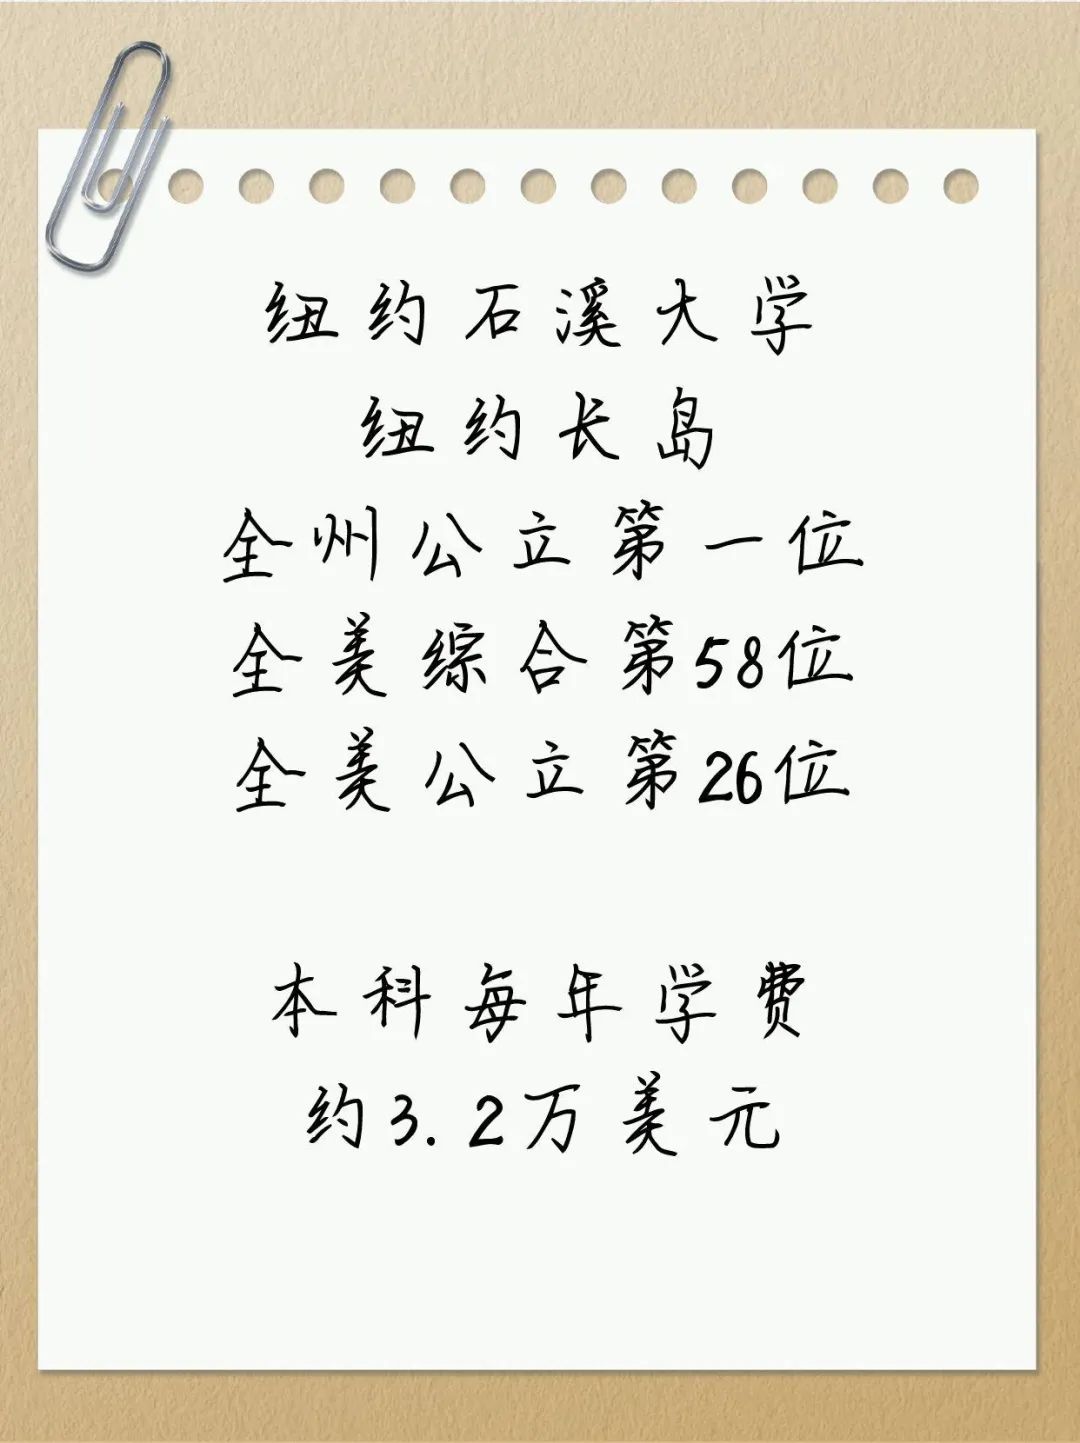 纽约石溪大学
纽约长岛
全州公立第一位
全美综合第58位
全美公立第26位
本科每年学费
约3.2万美元